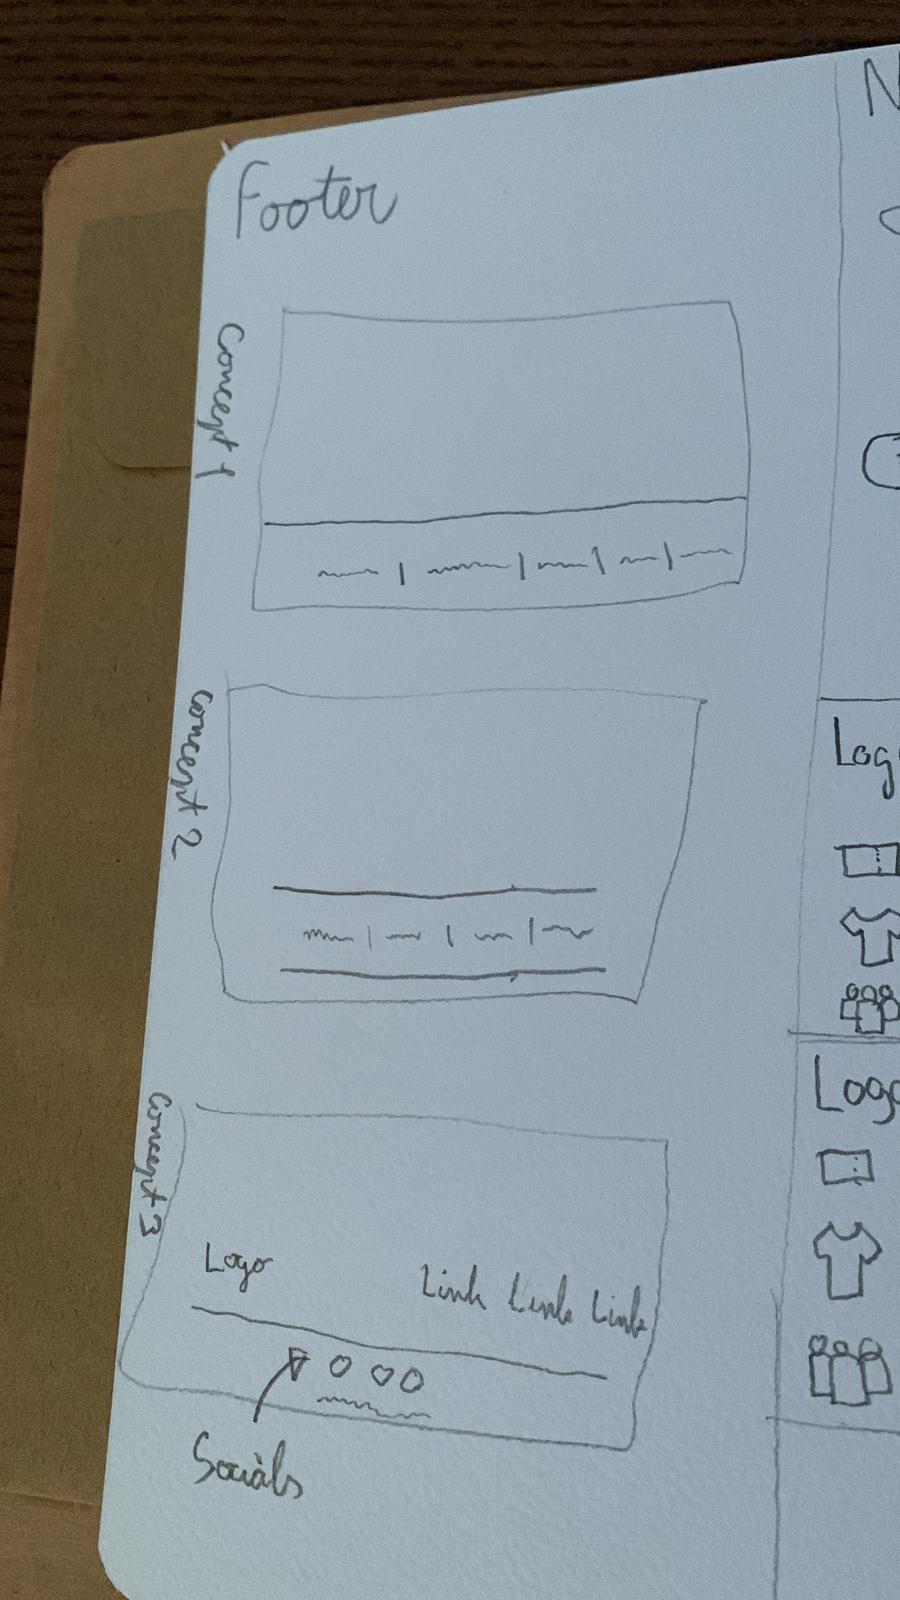 Footer
Concept 1
Concept 2
Concept 3
Logo
Link Link Link
Socials
N
Log
Logo